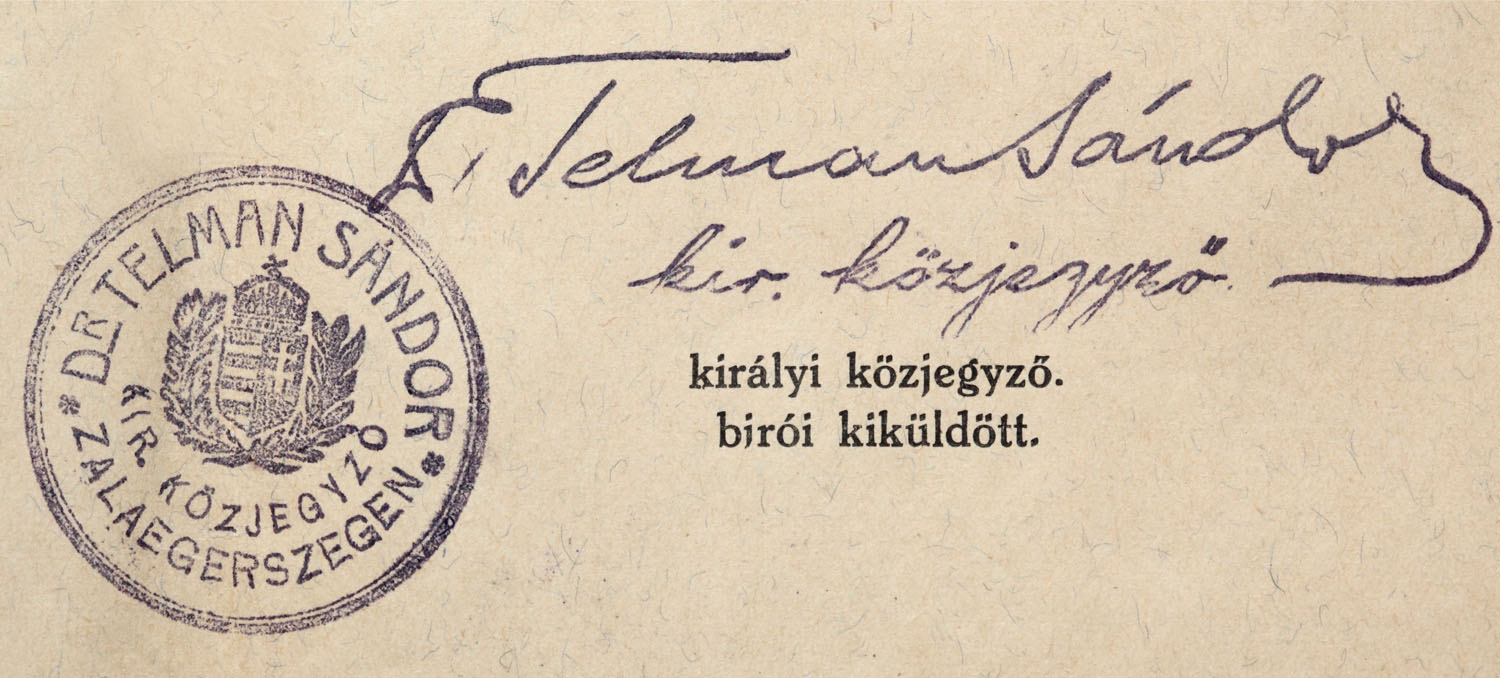 Dr. Telman Sándor
kir. közjegyző
királyi közjegyző.
birói kiküldött.
* DR TELMAN SÁNDOR *
KIR. KÖZJEGYZŐ
ZALAEGERSZEGEN